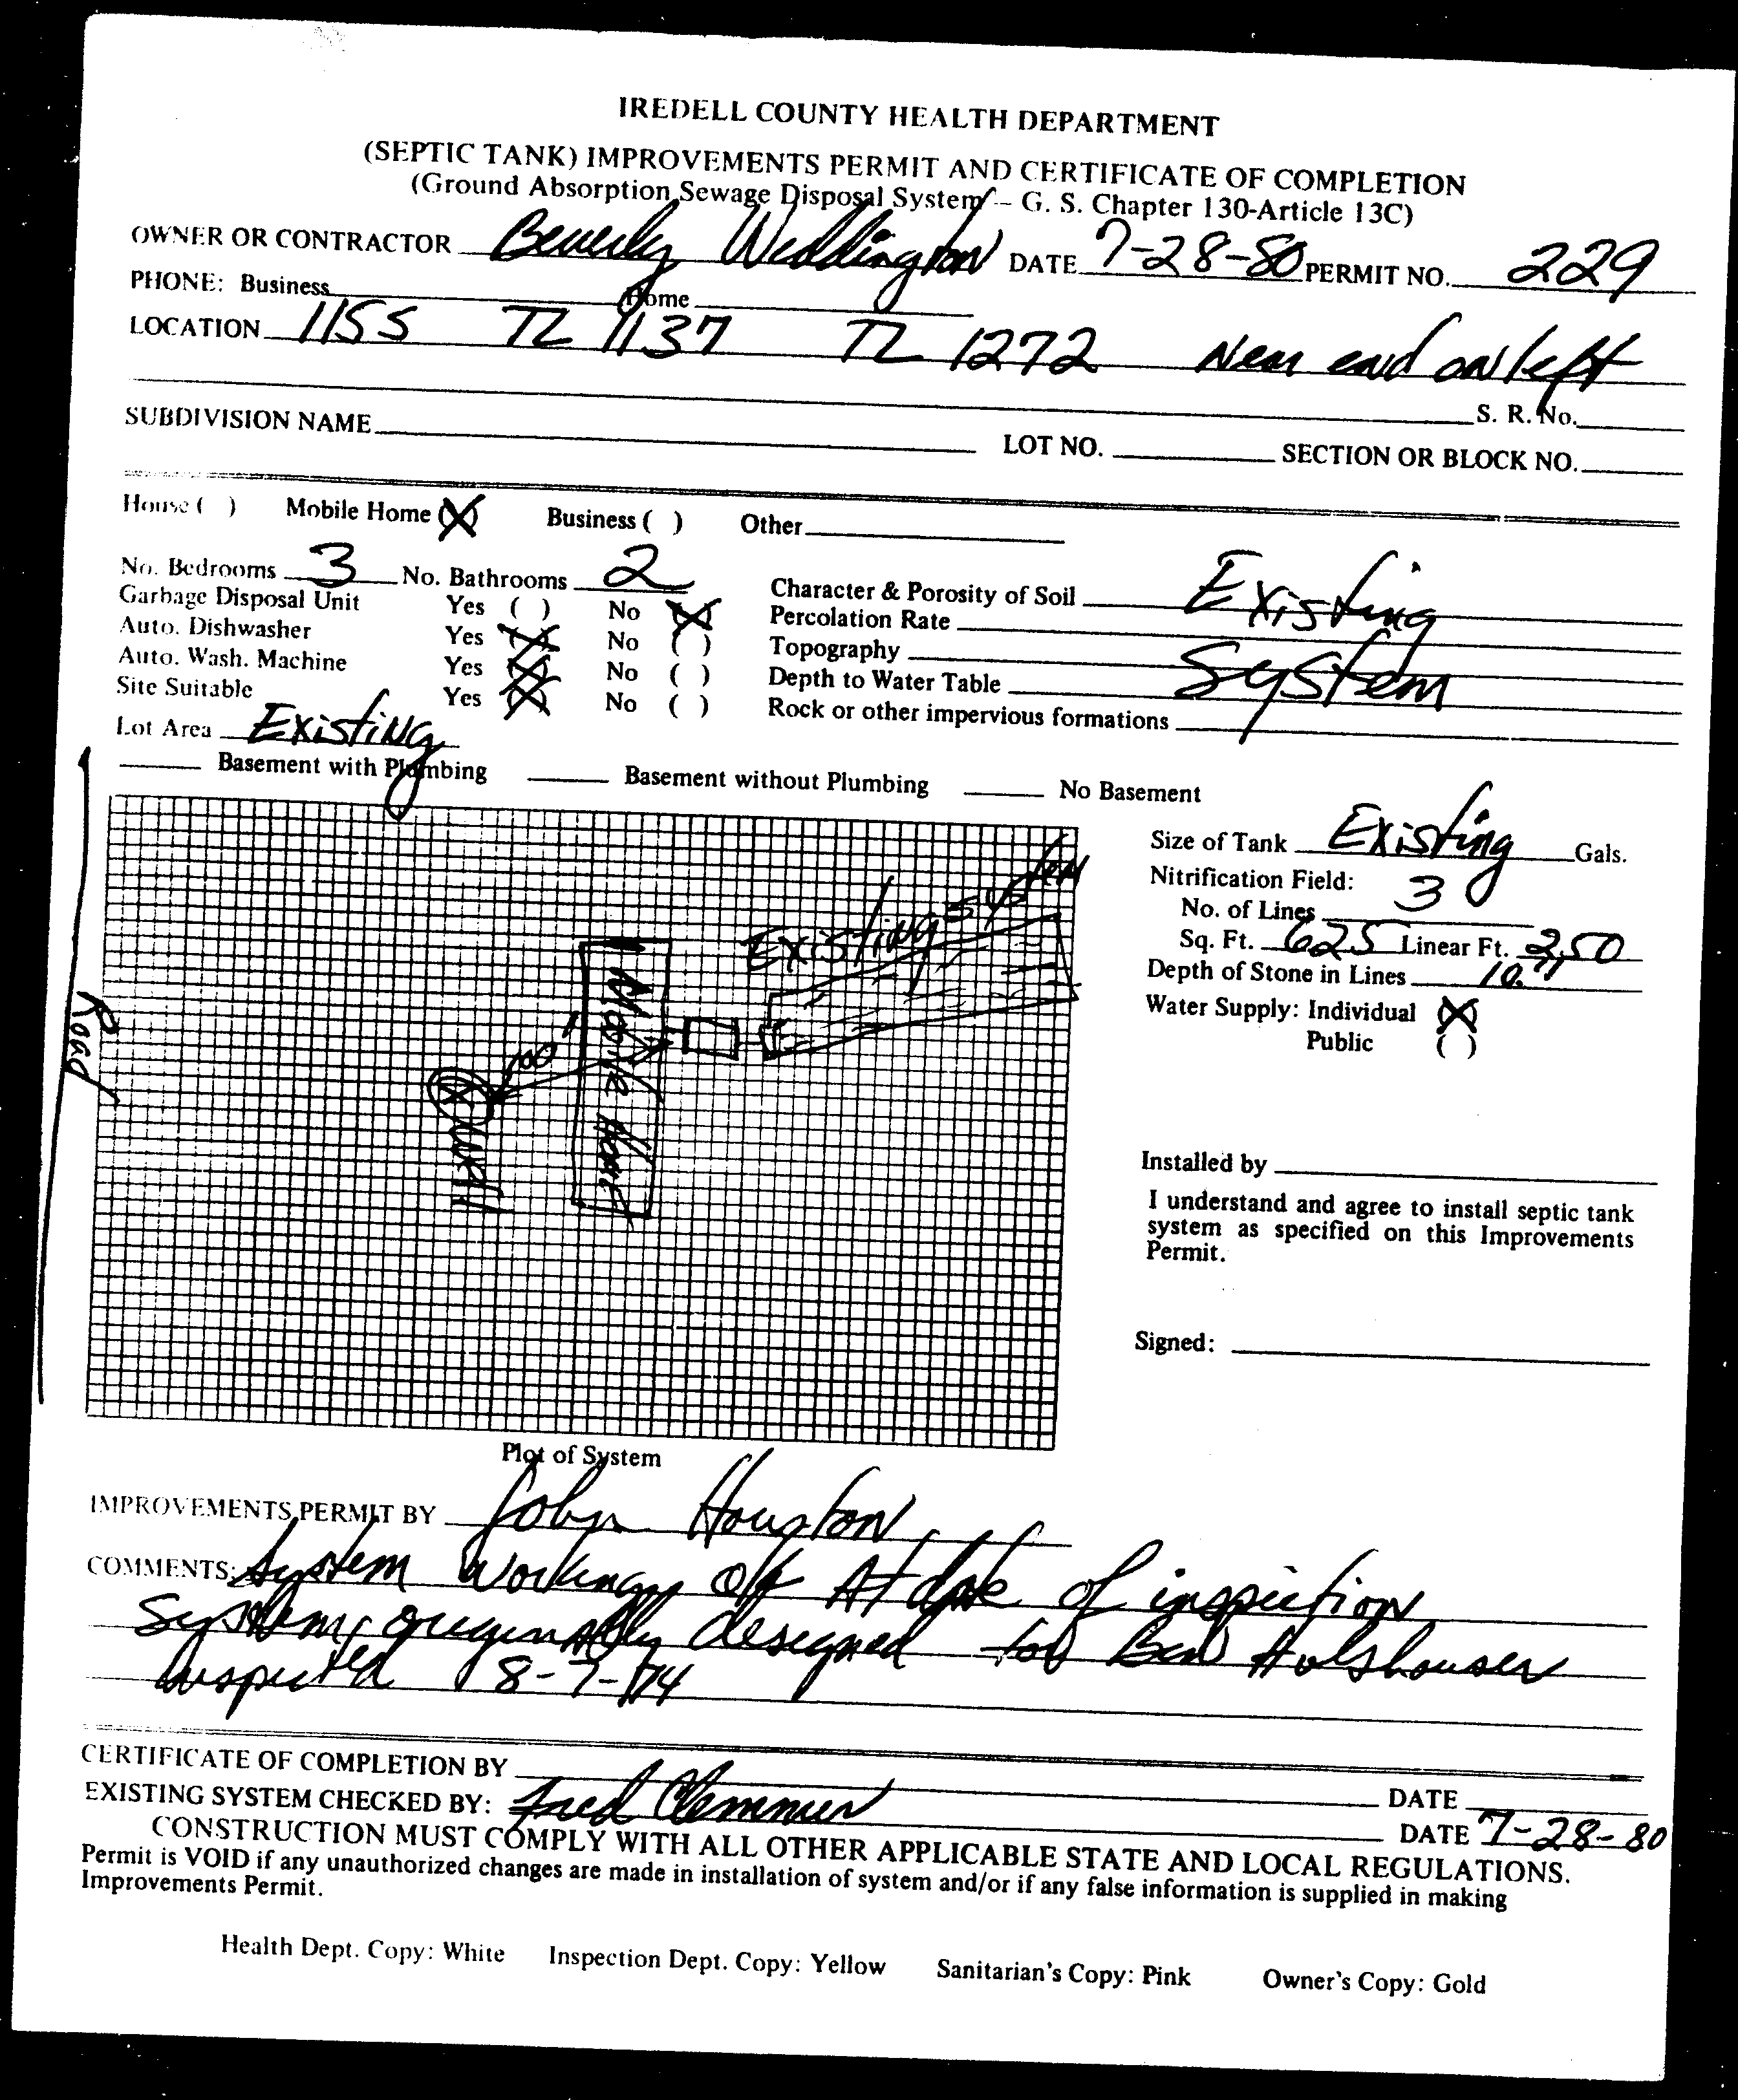 IREDELL COUNTY HEALTH DEPARTMENT
(SEPTIC TANK) IMPROVEMENTS PERMIT AND CERTIFICATE OF COMPLETION
(Ground Absorption Sewage Disposal System -- G. S. Chapter 130-Article 13C)
OWNER OR CONTRACTOR Beverly Weddington DATE 7-28-80 PERMIT NO. 229
PHONE: Business Home
LOCATION 1155 TL 1137 TL 1272 Near end on left
S. R. No.
SUBDIVISION NAME LOT NO. SECTION OR BLOCK NO.
House ( ) Mobile Home (X) Business ( ) Other
No. Bedrooms 3 No. Bathrooms 2 Character & Porosity of Soil Existing
Garbage Disposal Unit Yes ( ) No (X) Percolation Rate
Auto. Dishwasher Yes (X) No ( ) Topography System
Auto. Wash. Machine Yes (X) No ( ) Depth to Water Table
Site Suitable Yes (X) No ( ) Rock or other impervious formations
Lot Area Existing
Basement with Plumbing Basement without Plumbing No Basement
Size of Tank Existing Gals.
Nitrification Field:
No. of Lines 3
Sq. Ft. 625 Linear Ft. 250
Depth of Stone in Lines 10"
Water Supply: Individual (X)
Public ( )
Existing system
Mobile Home
100'
Well
Road
Installed by
I understand and agree to install septic tank
system as specified on this Improvements
Permit.
Signed:
Plot of System
IMPROVEMENTS PERMIT BY John Houston
COMMENTS: System Working OK At date of inspection
System originally designed for Ben Holshouser
Inspected 8-7-74
CERTIFICATE OF COMPLETION BY DATE
EXISTING SYSTEM CHECKED BY: Fred Clemmer DATE 7-28-80
CONSTRUCTION MUST COMPLY WITH ALL OTHER APPLICABLE STATE AND LOCAL REGULATIONS.
Permit is VOID if any unauthorized changes are made in installation of system and/or if any false information is supplied in making
Improvements Permit.
Health Dept. Copy: White Inspection Dept. Copy: Yellow Sanitarian's Copy: Pink Owner's Copy: Gold